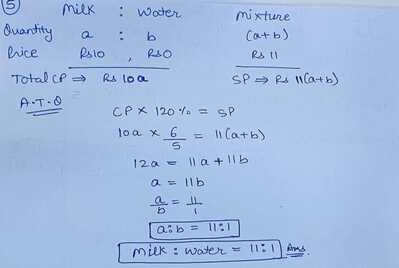 5 Milk : Water Mixture
Quantity a : b (a+b)
Price Rs10 , Rs0 Rs 11
Total CP ⇒ Rs 10a SP ⇒ Rs 11(a+b)
A.T.Q
CP × 120% = SP
10a × 6/5 = 11(a+b)
12a = 11a + 11b
a = 11b
a/b = 11/1
a:b = 11:1
Milk : Water = 11:1 Ans.